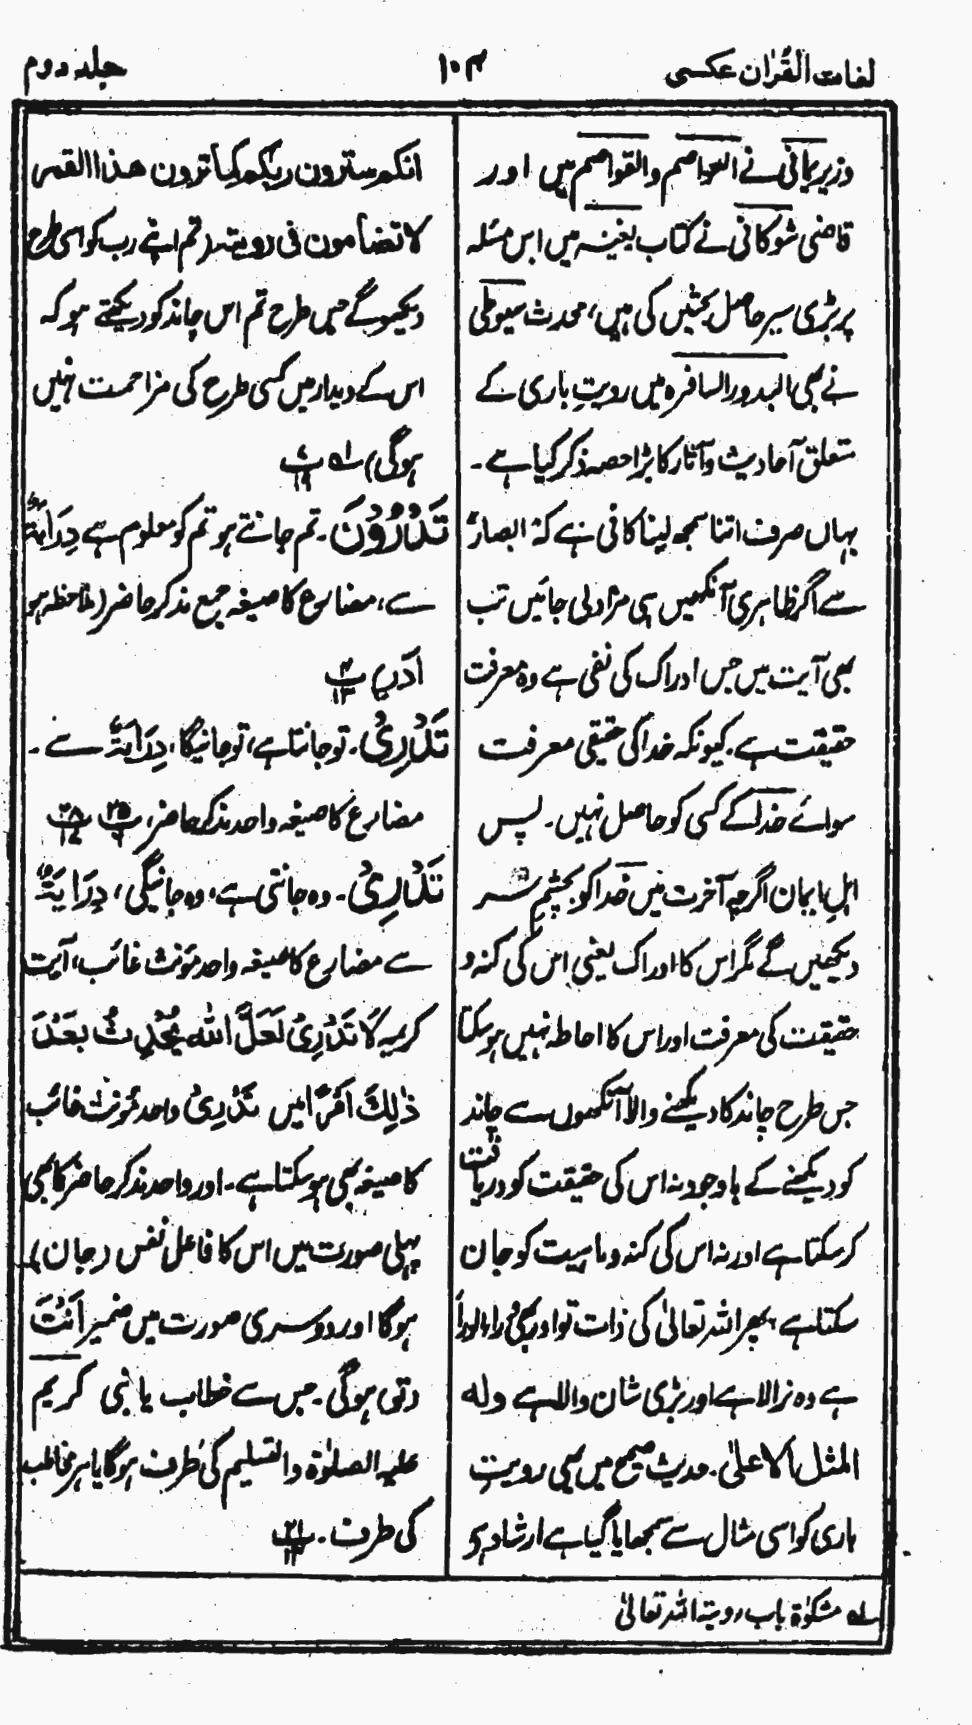 لغات القرٰان عکسی
۱۰۴
جلد دوم
وزیر یمانی نے العواصم والقواصم میں اور
قاضی شوکانی نے کتاب بغیتہ میں اس مسئلہ
پر بڑی سیر حاصل بحثیں کی ہیں، محدث سیوطی
نے بھی البدور السافرہ میں رویتِ باری کے
متعلق آحادیث وآثار کا بڑا حصہ ذکر کیا ہے۔
یہاں صرف اتنا سمجھ لینا کافی ہے کہ ابصار
سے اگر ظاہری آنکھیں ہی مراد لی جائیں تب
بھی آیت میں جس ادراک کی نفی ہے وہ معرفت
حقیقت ہے۔ کیونکہ خدا کی حقیقی معرفت
سوائے خدا کے کسی کو حاصل نہیں۔ پس
اہلِ ایمان اگرچہ آخرت میں خدا کو بچشمِ سر
دیکھیں گے مگر اس کا ادراک یعنی اس کی کنہ و
حقیقت کی معرفت اور اس کا احاطہ نہیں ہو سکتا
جس طرح چاند کا دیکھنے والا آنکھوں سے چاند
کو دیکھنے کے باوجود نہ اس کی حقیقت کو دریافت
کر سکتا ہے اور نہ اس کی کنہ و ماہیت کو جان
سکتا ہے، پھر اللہ تعالیٰ کی ذات تو اور بھی وراءالوراً
ہے وہ نرالا ہے اور بڑی شان والا ہے ولہ
المثل الاعلیٰ۔ حدیث صحیح میں بھی رویتِ
باری کو اسی مثال سے سمجھایا گیا ہے ارشاد ہے
انکم سترون ربکم کما ترون ھذا القمر
لا تضامون فی رویتہ (تم اپنے رب کو اسی طرح
دیکھو گے جس طرح تم اس چاند کو دیکھتے ہو کہ
اس کے دیدار میں کسی طرح کی مزاحمت نہیں
ہوگی) لہ پ
تَدْرُوْنَ۔ تم جانتے ہو تم کو معلوم ہے دِرَایَۃٌ
سے، مضارع کا صیغہ جمع مذکر حاضر (ملاحظہ ہو
اَدْرِی پ
تَدْرِیْ۔ تو جانتا ہے، تو جانیگا، دِرَایَۃٌ سے۔
مضارع کا صیغہ واحد مذکر حاضر، پ ۲۵ پ
تَدْرِیْ۔ وہ جانتی ہے، وہ جانیگی، دِرَایَۃٌ
سے مضارع کا صیغہ واحد مؤنث غائب، آیت
کریمہ لَا تَدْرِیْ لَعَلَّ اللّٰہَ یُحْدِثُ بَعْدَ
ذٰلِکَ اَمْرًا میں تَدْرِیْ واحد مؤنث غائب
کا صیغہ بھی ہو سکتا ہے۔ اور واحد مذکر حاضر کا بھی
پہلی صورت میں اس کا فاعل نفس (جان)
ہوگا اور دوسری صورت میں ضمیر اَنْتَ
ہوگی۔ جس سے خطاب یا نبی کریم
علیہ الصلوٰۃ والتسلیم کی طرف ہوگا یا ہر مخاطب
کی طرف۔ پ
لہ مشکوٰۃ باب رویۃ اللہ تعالیٰ